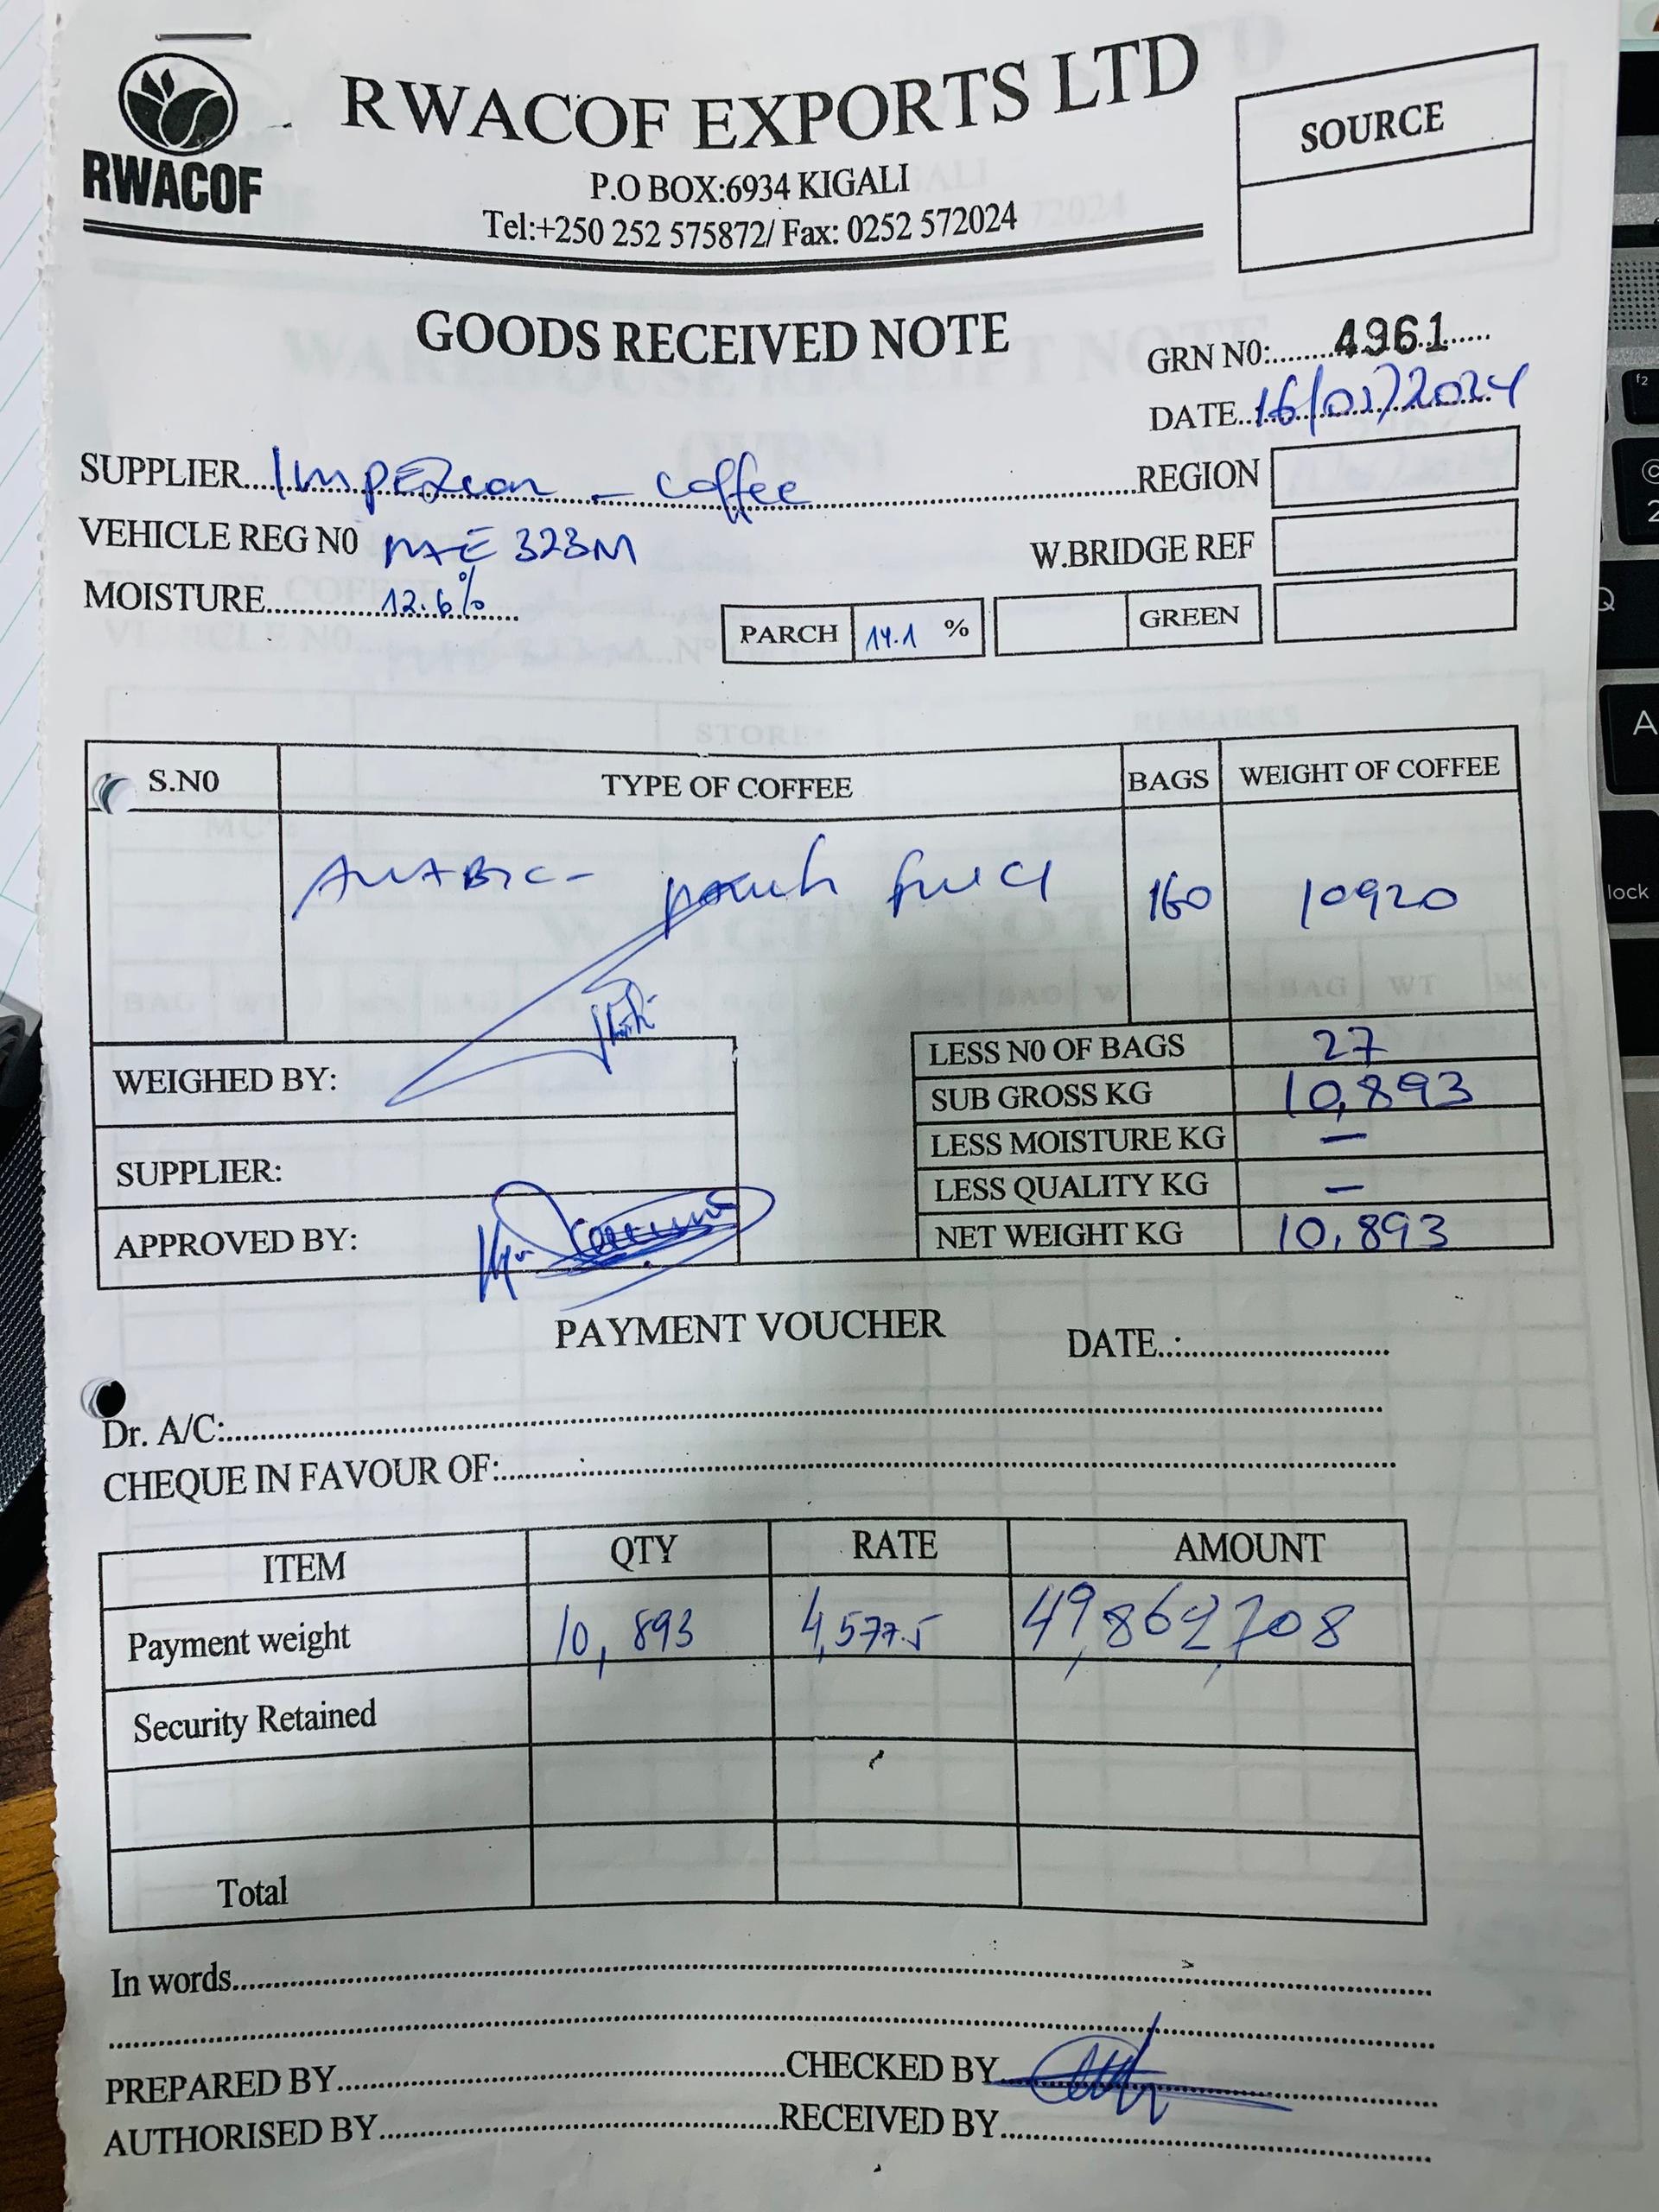 RWACOF
RWACOF EXPORTS LTD
P.O BOX:6934 KIGALI
Tel:+250 252 575872/ Fax: 0252 572024
SOURCE
GOODS RECEIVED NOTE
GRN N0:........4961......
DATE..16/01/2024
SUPPLIER... - coffee ...REGION
VEHICLE REG N0 323M
W.BRIDGE REF
MOISTURE..........12.6%......
PARCH 14.1 % GREEN
S.N0 TYPE OF COFFEE BAGS WEIGHT OF COFFEE
160 10920
LESS N0 OF BAGS 27
WEIGHED BY:
SUB GROSS KG 10,893
LESS MOISTURE KG –
SUPPLIER:
LESS QUALITY KG –
APPROVED BY:
NET WEIGHT KG 10,893
PAYMENT VOUCHER DATE..:..............................
Dr. A/C:..............................
CHEQUE IN FAVOUR OF:..............................
ITEM QTY RATE AMOUNT
Payment weight 10,893 4,577.5 49,862,708
Security Retained
Total
In words..............................
PREPARED BY..............................CHECKED BY..............................
AUTHORISED BY..............................RECEIVED BY..............................